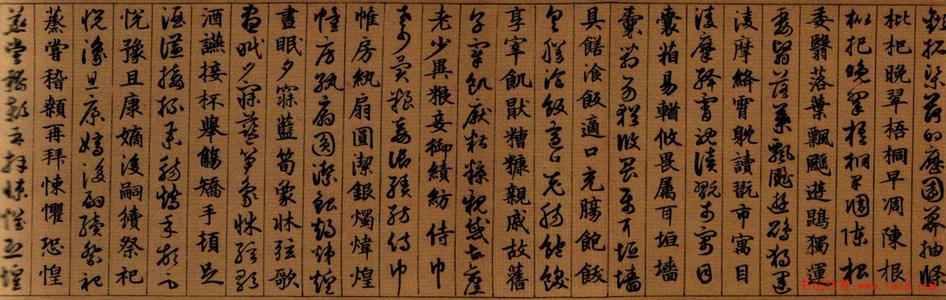 歡招渠荷的歷園莽抽條
枇杷晚翠梧桐早凋陳根
枇杷晚翠梧桐早凋陳根
委翳落葉飄颻遊鵾獨運
委翳落葉飄颻遊鵾獨運
淩摩絳霄躭讀翫市寓目
淩摩絳霄躭讀翫市寓目
囊箱易輶攸畏属耳垣墻
囊箱易輶攸畏属耳垣墻
具饍飡飯適口充腸飽飫
具饍飡飯適口充腸飽飫
享宰飢猒糟糠親戚故舊
享宰飢猒糟糠親戚故舊
老少異粮妾御績紡侍巾
老少異粮妾御績紡侍巾
帷房紈扇圓潔銀燭煒煌
帷房紈扇圓潔銀燭煒煌
晝眠夕寐藍筍象牀弦歌
晝眠夕寐藍筍象牀弦歌
酒讌接杯舉觴矯手頓足
酒讌接杯舉觴矯手頓足
悅豫且康嫡後嗣續祭祀
悅豫且康嫡後嗣續祭祀
蒸甞稽顙再拜悚懼恐惶
蒸甞稽顙再拜悚懼恐惶